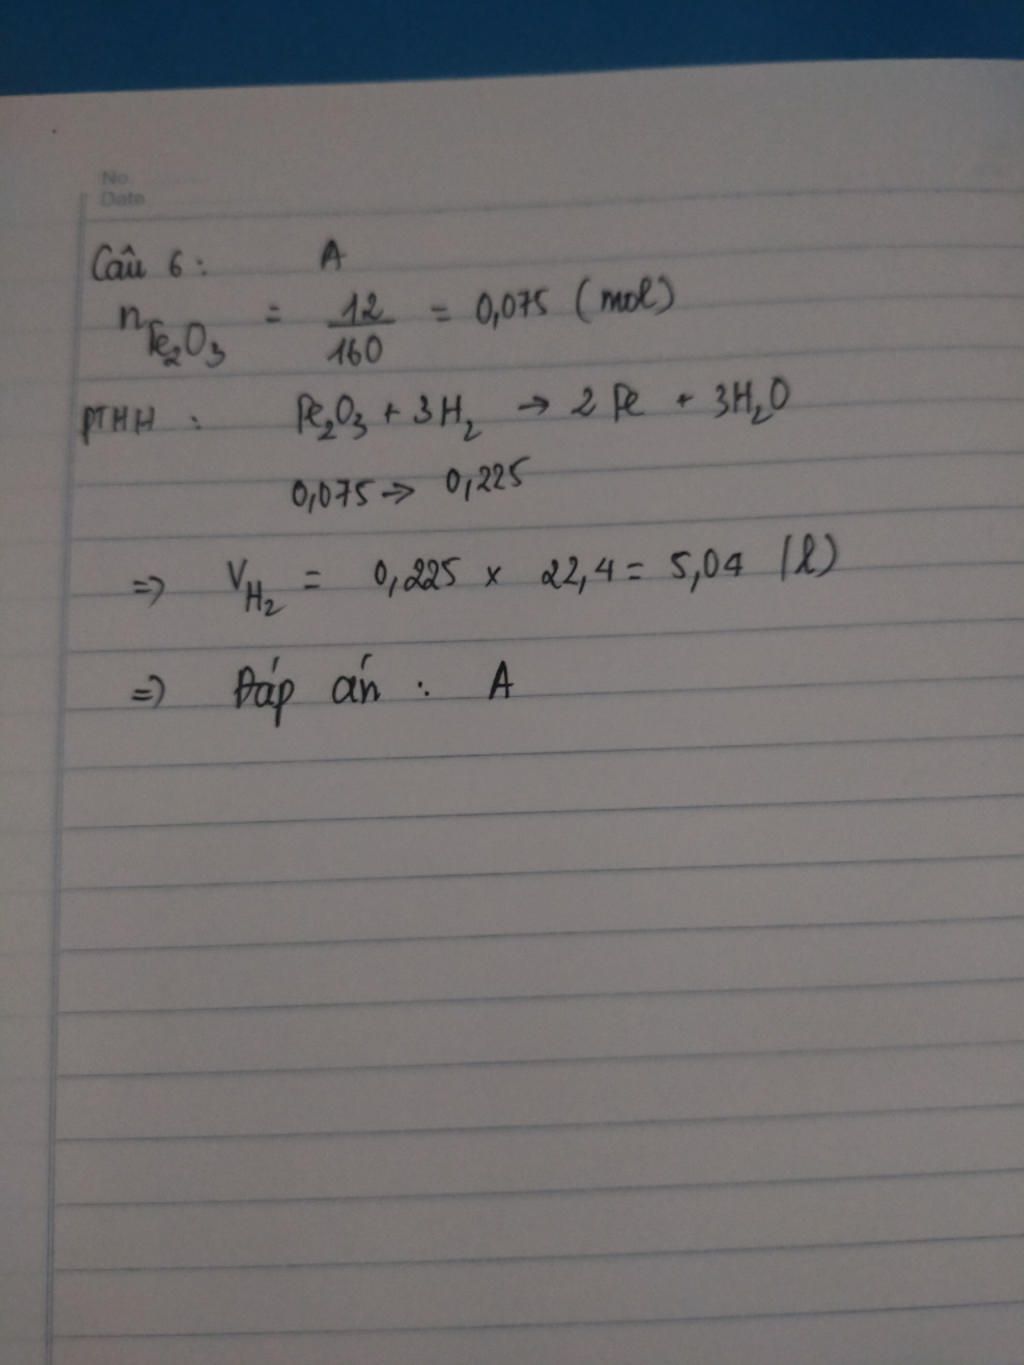 No.
Date
Câu 6: A
n Fe₂O₃ = 12/160 = 0,075 (mol)
PTHH : Fe₂O₃ + 3H₂ → 2Fe + 3H₂O
0,075 → 0,225
=> V H₂ = 0,225 x 22,4 = 5,04 (l)
=> Đáp án : A